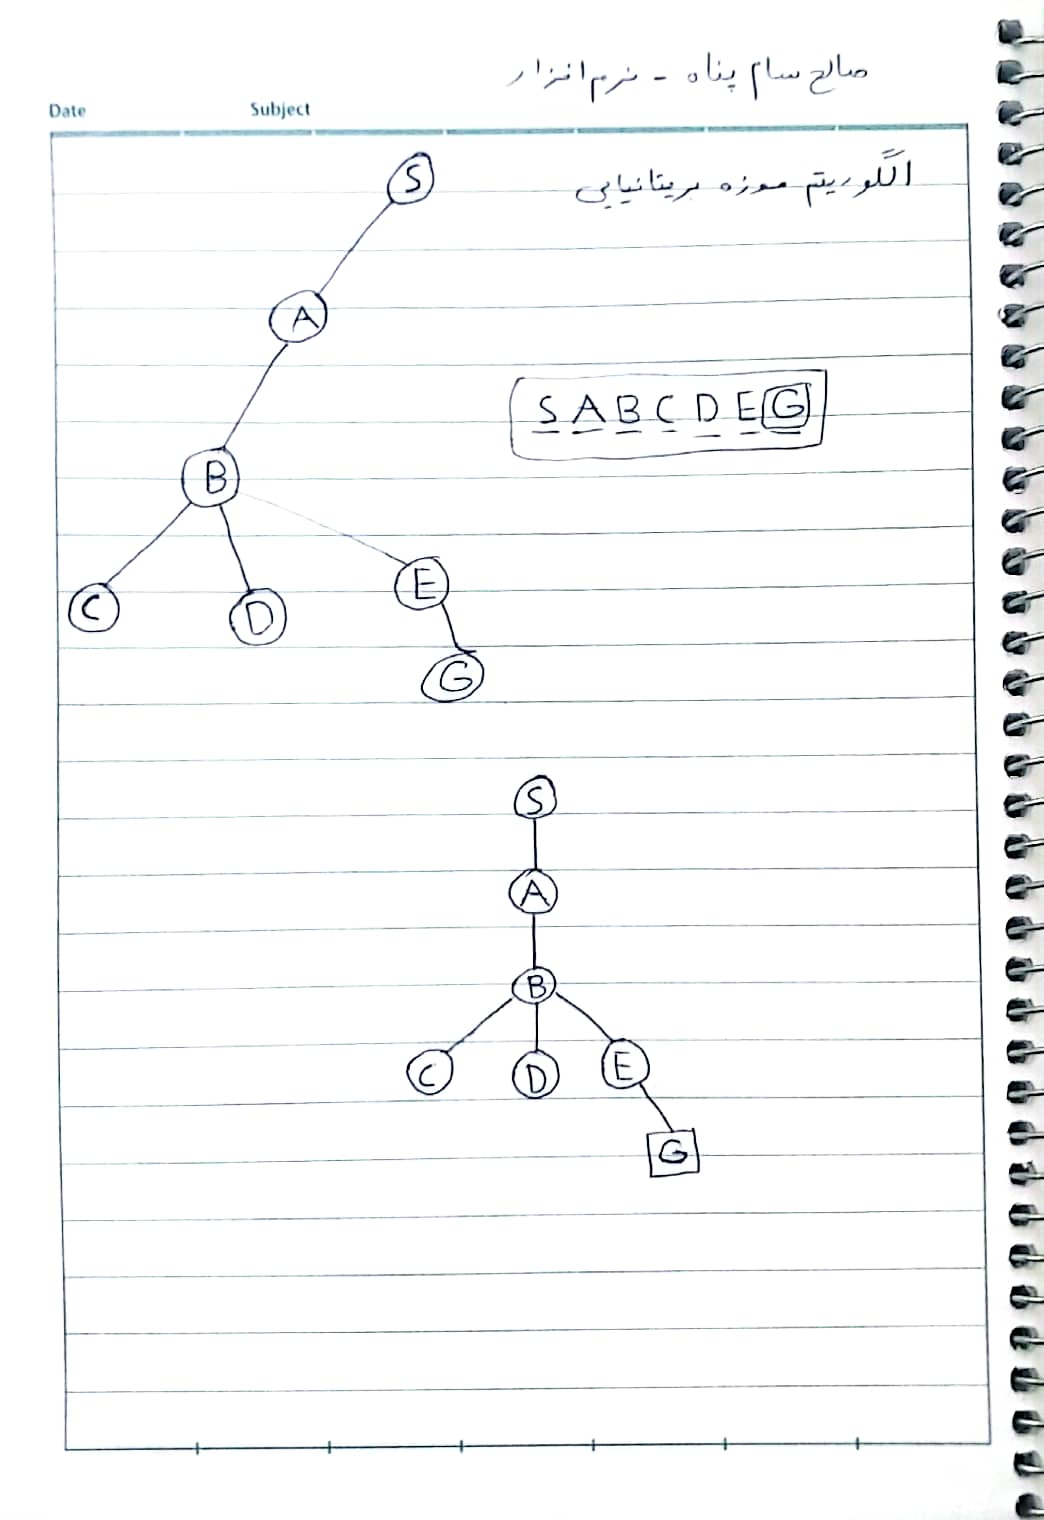 صالح سام پناه - نرم افزار
Date Subject
الگوریتم موزه بریتانیایی
S
A
S A B C D E G
B
C D E
G
S
A
B
C D E
G